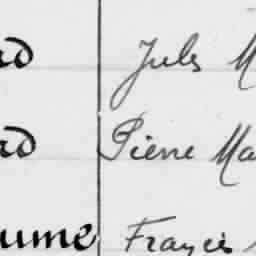 rd Jules M
rd Pierre Ma
ume Francis